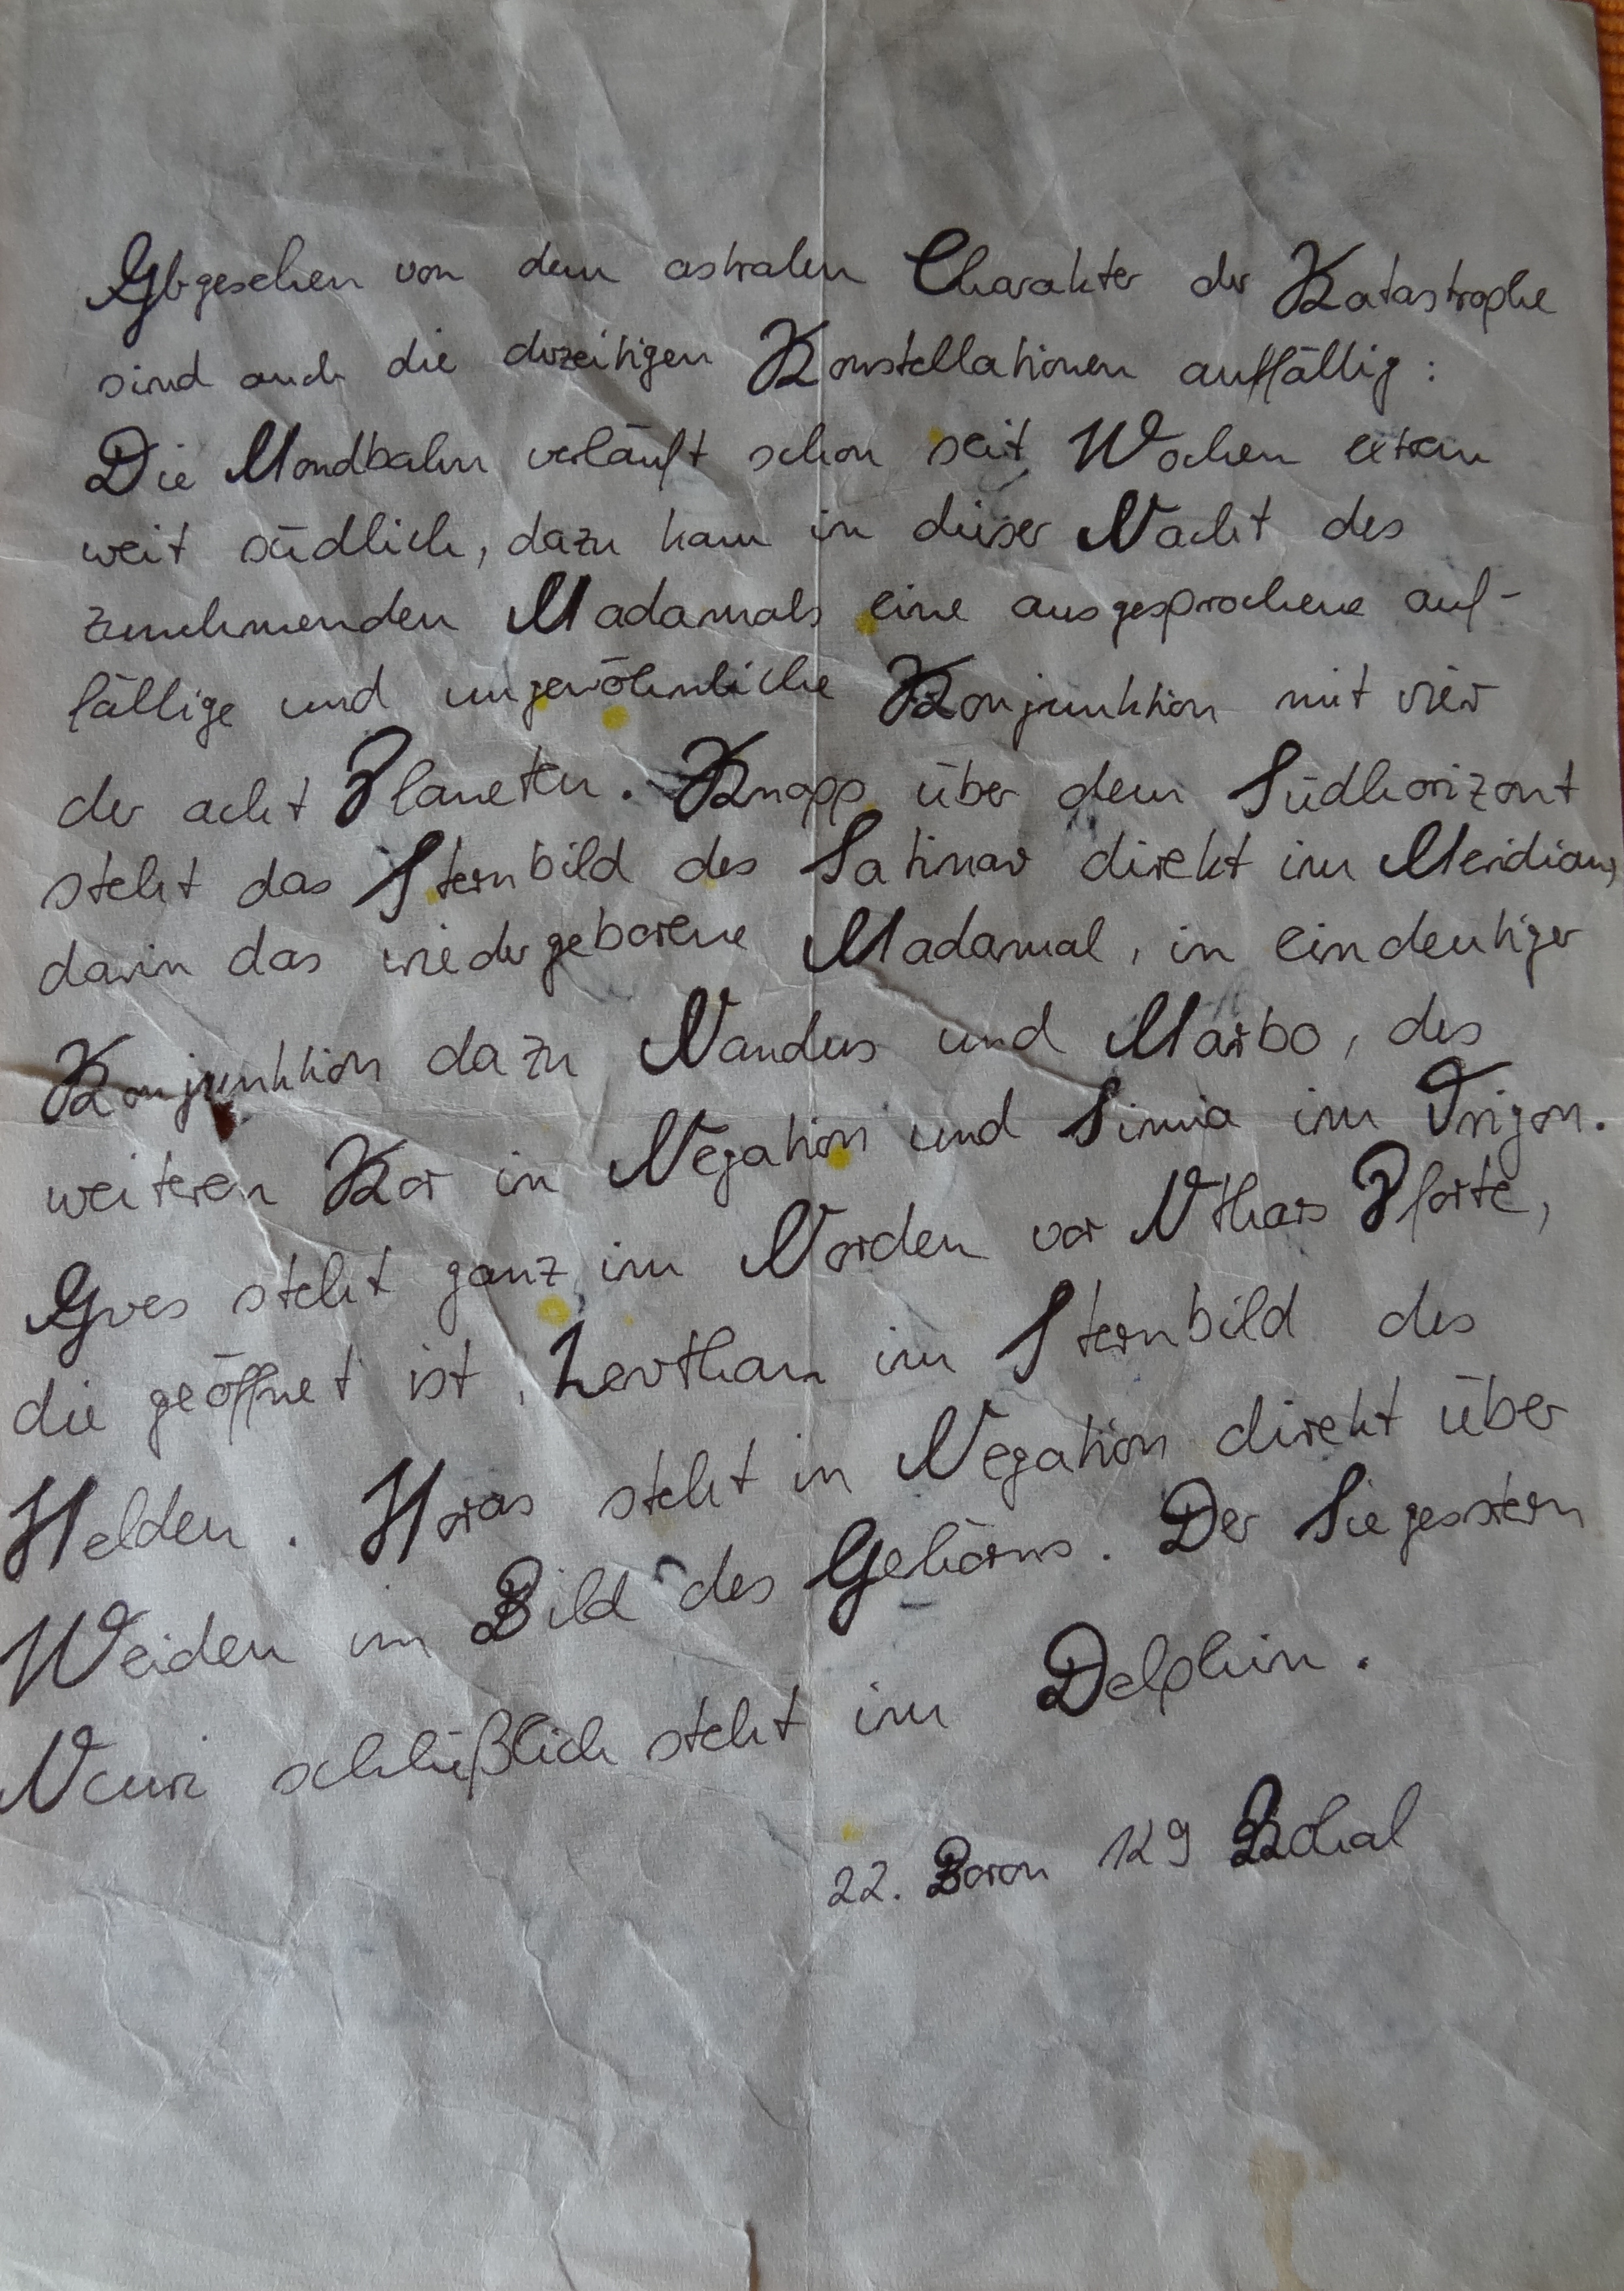 Abgesehen von dem astralen Charakter der Katastrophe
sind auch die derzeitigen Konstellationen auffällig:
Die Mondbahn verläuft schon seit Wochen extrem
weit südlich, dazu kam in dieser Nacht des
zunehmenden Madamals eine ausgesprochene auf-
fällige und ungewöhnliche Konjunktion mit vier
der acht Planeten. Knapp über dem Südhorizont
steht das Sternbild des Satinav direkt im Meridian,
darin das wiedergeborene Madamal, in eindeutiger
Konjunktion dazu Nandus und Marbo, des
weiteren Kor in Negation und Simia im Trigon.
Aves steht ganz im Norden vor Uthars Pforte,
die geöffnet ist, Levthan im Sternbild des
Helden. Horas steht in Negation direkt über
Weiden im Bild des Gehörns. Der Siegesstern
schließlich steht im Delphin.
22. Boron 129 Bohal